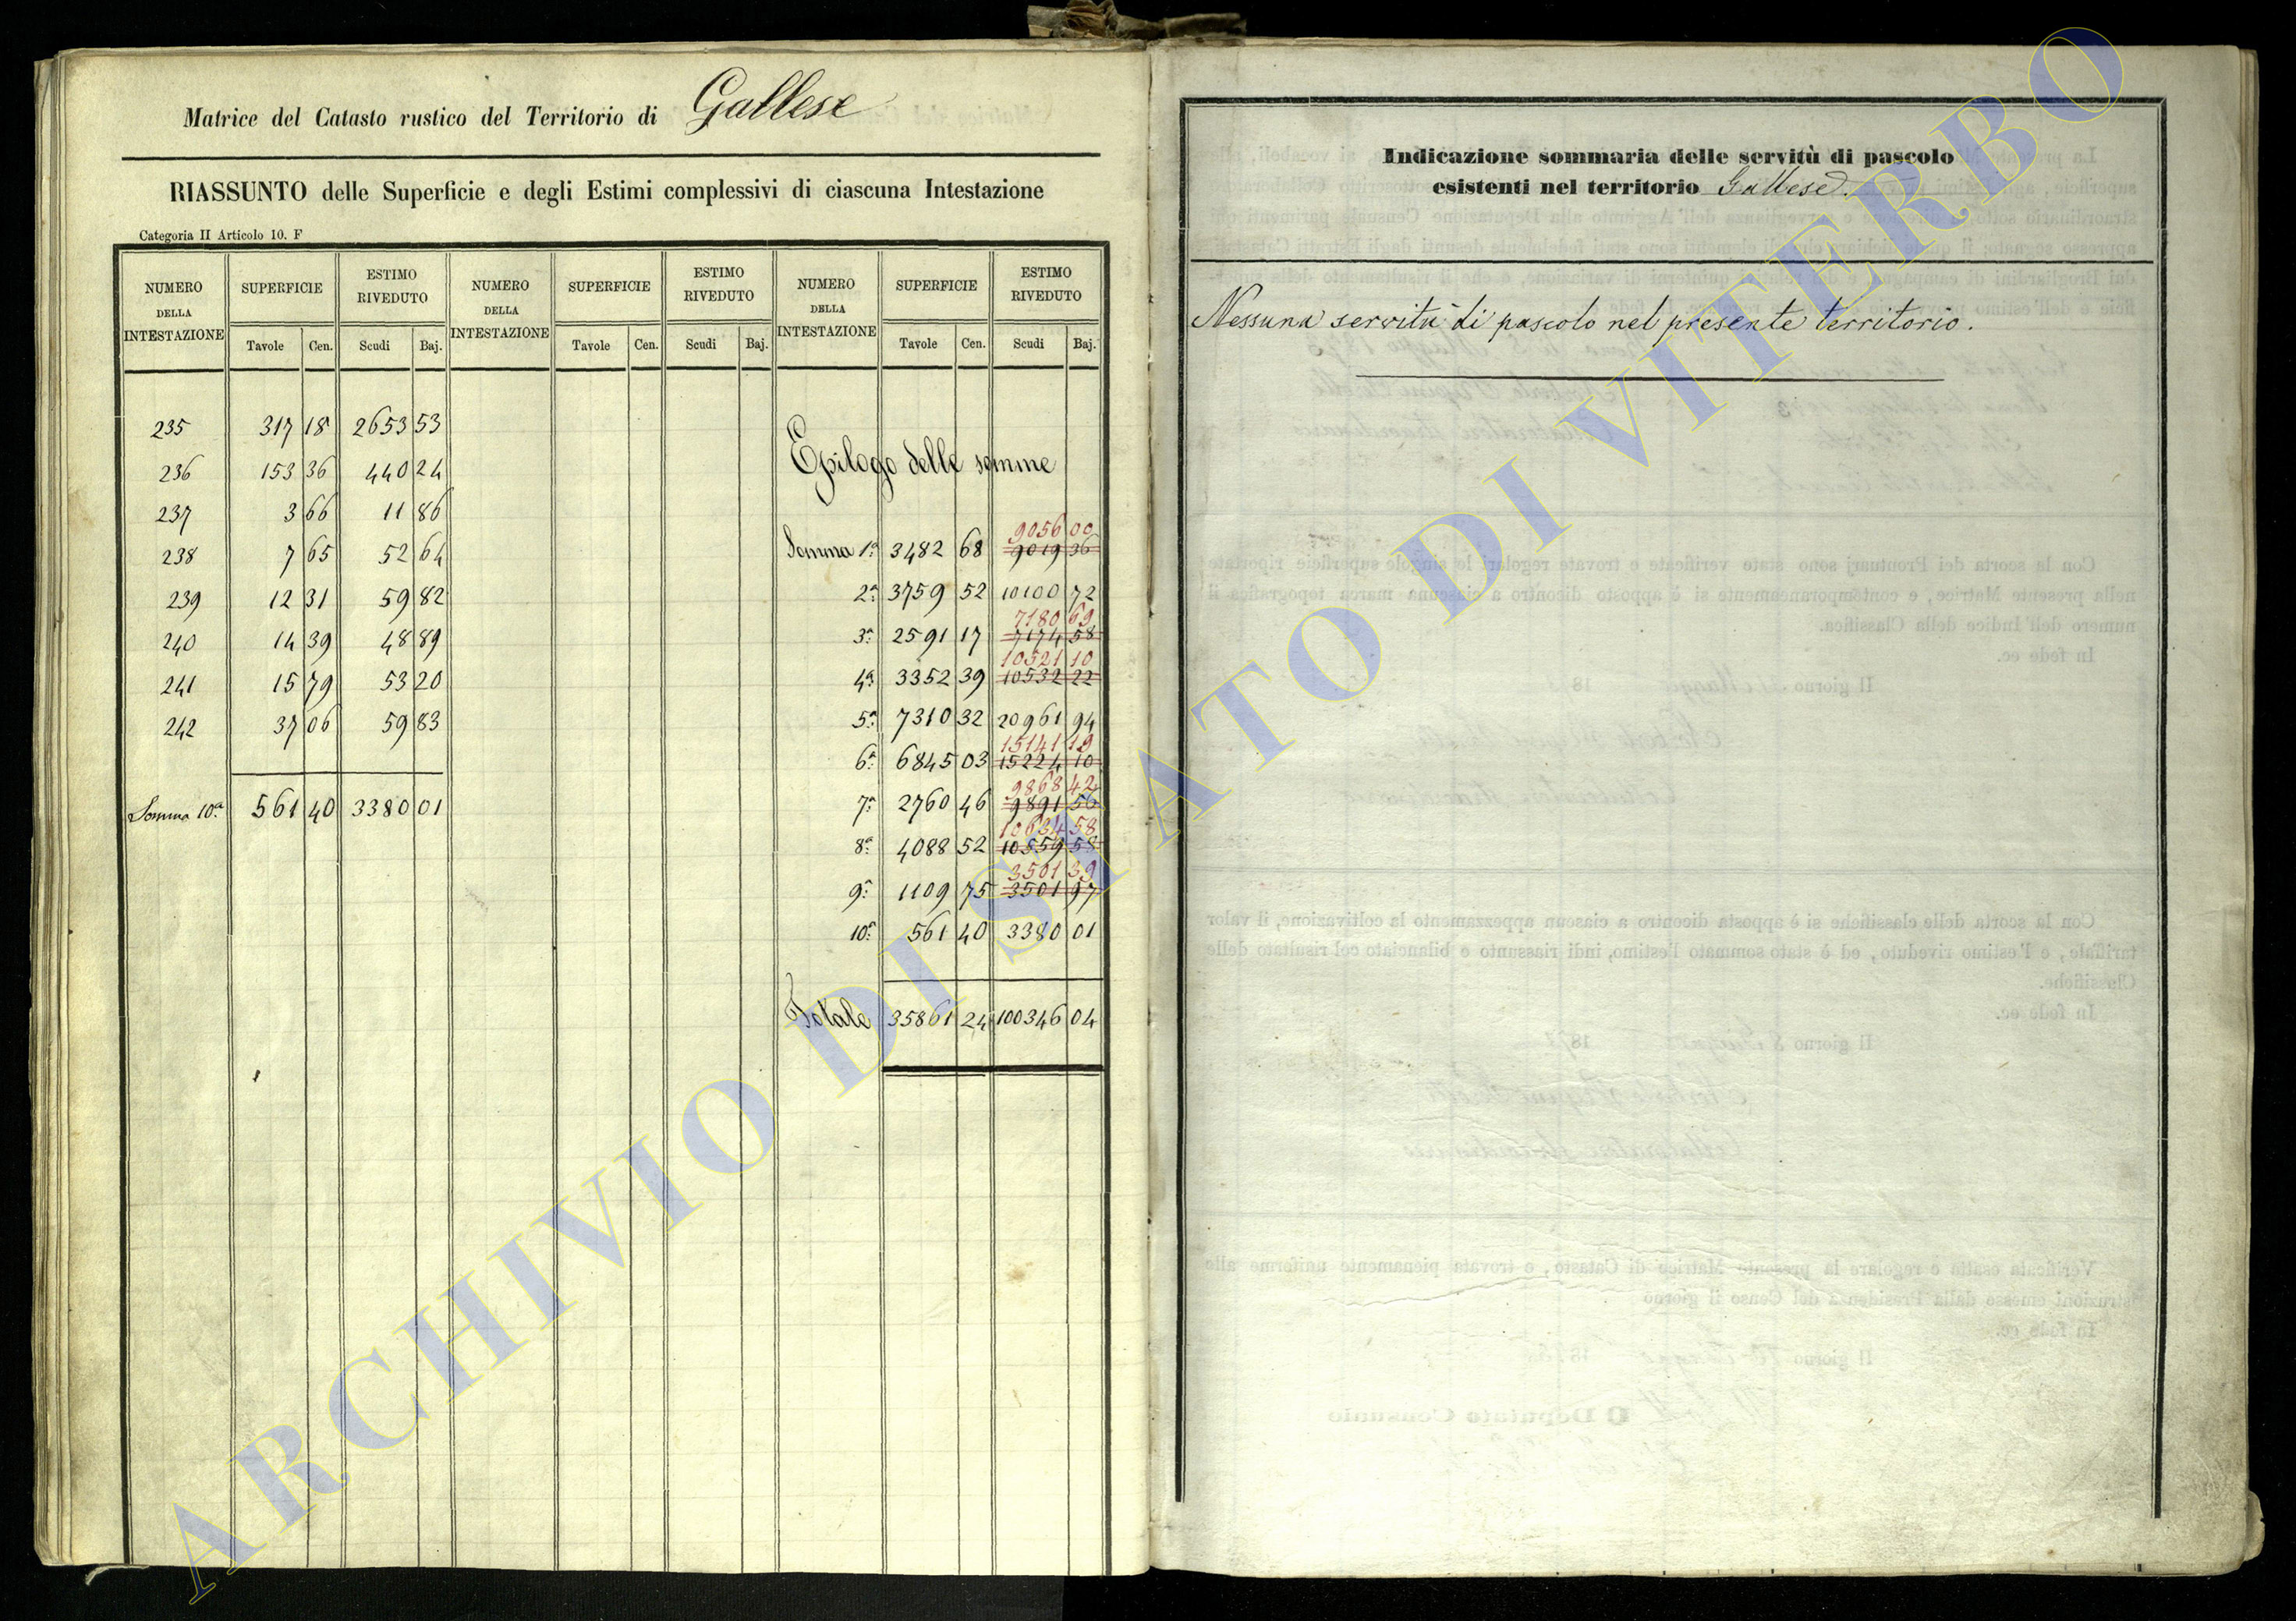 Matrice del Catasto rustico del Territorio di Gallese
RIASSUNTO delle Superficie e degli Estimi complessivi di ciascuna Intestazione
Categoria II Articolo 10. F
NUMERO DELLA INTESTAZIONE SUPERFICIE ESTIMO RIVEDUTO NUMERO DELLA INTESTAZIONE SUPERFICIE ESTIMO RIVEDUTO NUMERO DELLA INTESTAZIONE SUPERFICIE ESTIMO RIVEDUTO
Tavole Cen. Scudi Baj. Tavole Cen. Scudi Baj. Tavole Cen. Scudi Baj.
235 317 18 2653 53
236 153 36 440 24
237 3 66 11 86
238 7 65 52 64
239 12 31 59 82
240 14 39 48 89
241 15 79 53 20
242 37 06 59 83
Somma 10.a 561 40 3380 01
Epilogo delle somme
9056 00
Somma 1.a 3482 68 9019 36
2.a 3759 52 10100 72
7180 69
3.a 2591 17 7174 58
10521 10
4.a 3352 39 10532 22
5.a 7310 32 20961 94
15141 19
6.a 6845 03 15224 10
9868 42
7.a 2760 46 9891 56
10634 58
8.a 4088 52 10559 58
3501 39
9.a 1109 75 3501 97
10.a 561 40 3380 01
Totale 35861 24 100346 04
Indicazione sommaria delle servitù di pascolo
esistenti nel territorio Gallese.
Nessuna servitù di pascolo nel presente territorio.
ARCHIVIO DI STATO DI VITERBO